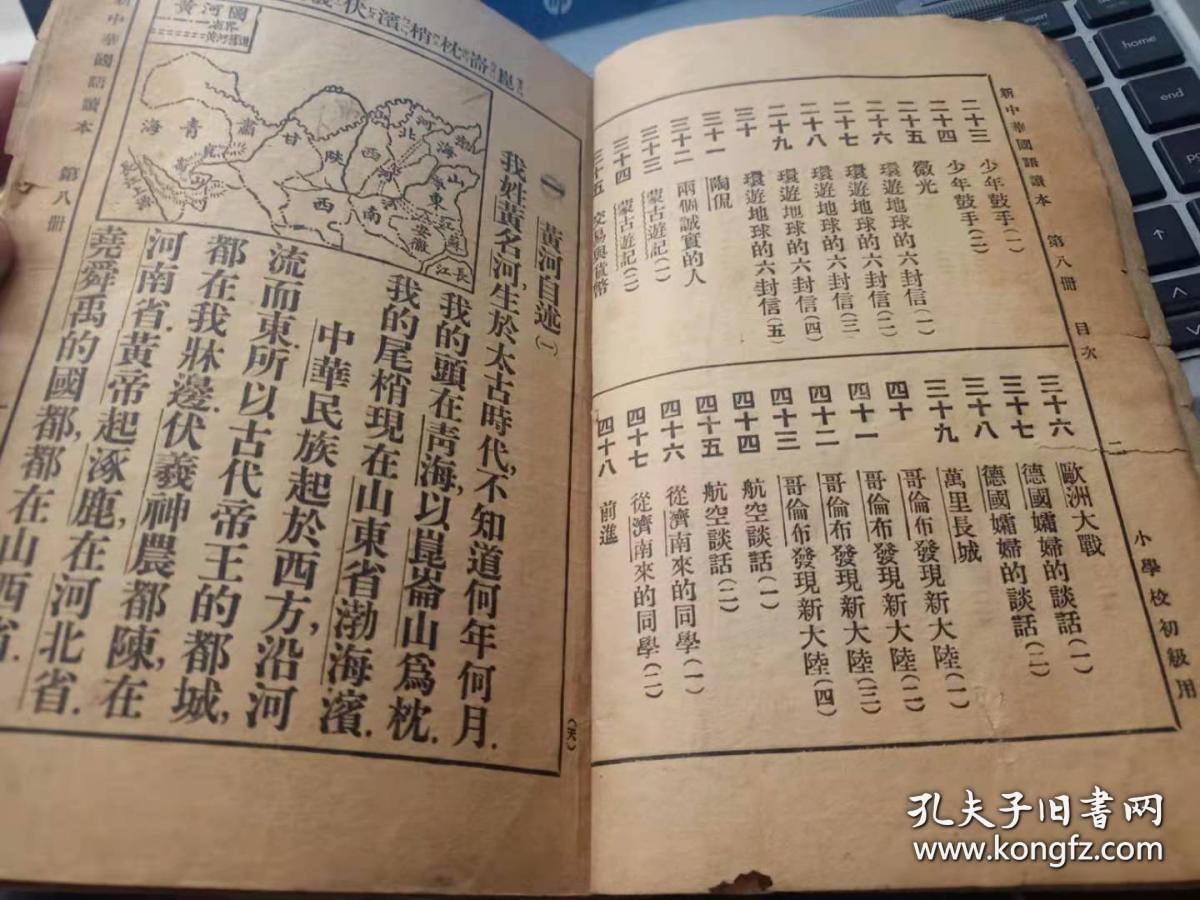 新中華國語讀本 第八冊 目次 二 小學校初級用
二十三 少年鼓手(一)
二十四 少年鼓手(二)
二十五 微光
二十六 環遊地球的六封信(一)
二十七 環遊地球的六封信(二)
二十八 環遊地球的六封信(三
二十九 環遊地球的六封信(四)
三十 環遊地球的六封信(五)
三十一 陶侃
三十二 兩個誠實的人
三十三 蒙古遊記(一)
三十四 蒙古遊記(二)
三十五 交易與貨幣
三十六 歐洲大戰
三十七 德國孀婦的談話(一)
三十八 德國孀婦的談話(二)
三十九 萬里長城
四十 哥倫布發現新大陸(一)
四十一 哥倫布發現新大陸(二)
四十二 哥倫布發現新大陸(三)
四十三 哥倫布發現新大陸(四)
四十四 航空談話(一)
四十五 航空談話(二)
四十六 從濟南來的同學(一)
四十七 從濟南來的同學(二)
四十八 前進
崑崙枕梢濱伏
一 黃河自述(一)
我姓黃名河,生於太古時代,不知道何年何月.
我的頭在青海,以崑崙山爲枕.
我的尾梢現在山東省渤海濱.
中華民族起於西方,沿河
流而東.所以古代帝王的都城,
都在我牀邊.伏羲神農都陳,在
河南省.黃帝起涿鹿,在河北省.
堯舜禹的國都,都在山西省.
黃河圖
省界
渤海
河北
山東
江蘇
安徽
長江
河南
山西
陝西
甘肅
青海
新中華國語讀本 第八冊
(天)
孔夫子旧书网
www.kongfz.com
end